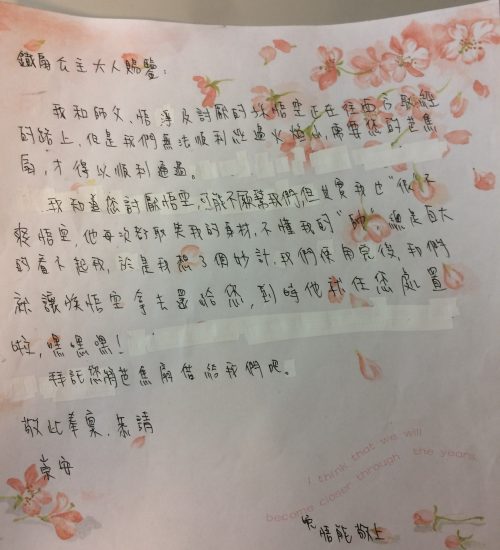 鐵扇公主大人賜鑒：
我和師父、悟淨及討厭的孫悟空正在往西方取經
的路上，但是我們無法順利經過火焰山，需要您的芭蕉
扇，才得以順利通過。
我知道您討厭悟空，可能不願幫我們，但其實我也"很"不
爽悟空，他每次都取笑我的身材，不懂我的"　"總是自大
的看不起我，於是我想了個妙計，我們使用完後，我們
就讓悟空拿去還給您，到時他就任您處置
啦，嘿嘿嘿！
拜託您將芭蕉扇借給我們吧。
敬此奉稟，恭請
崇安
I think that we will
become closer through the years.
晚 悟能敬上